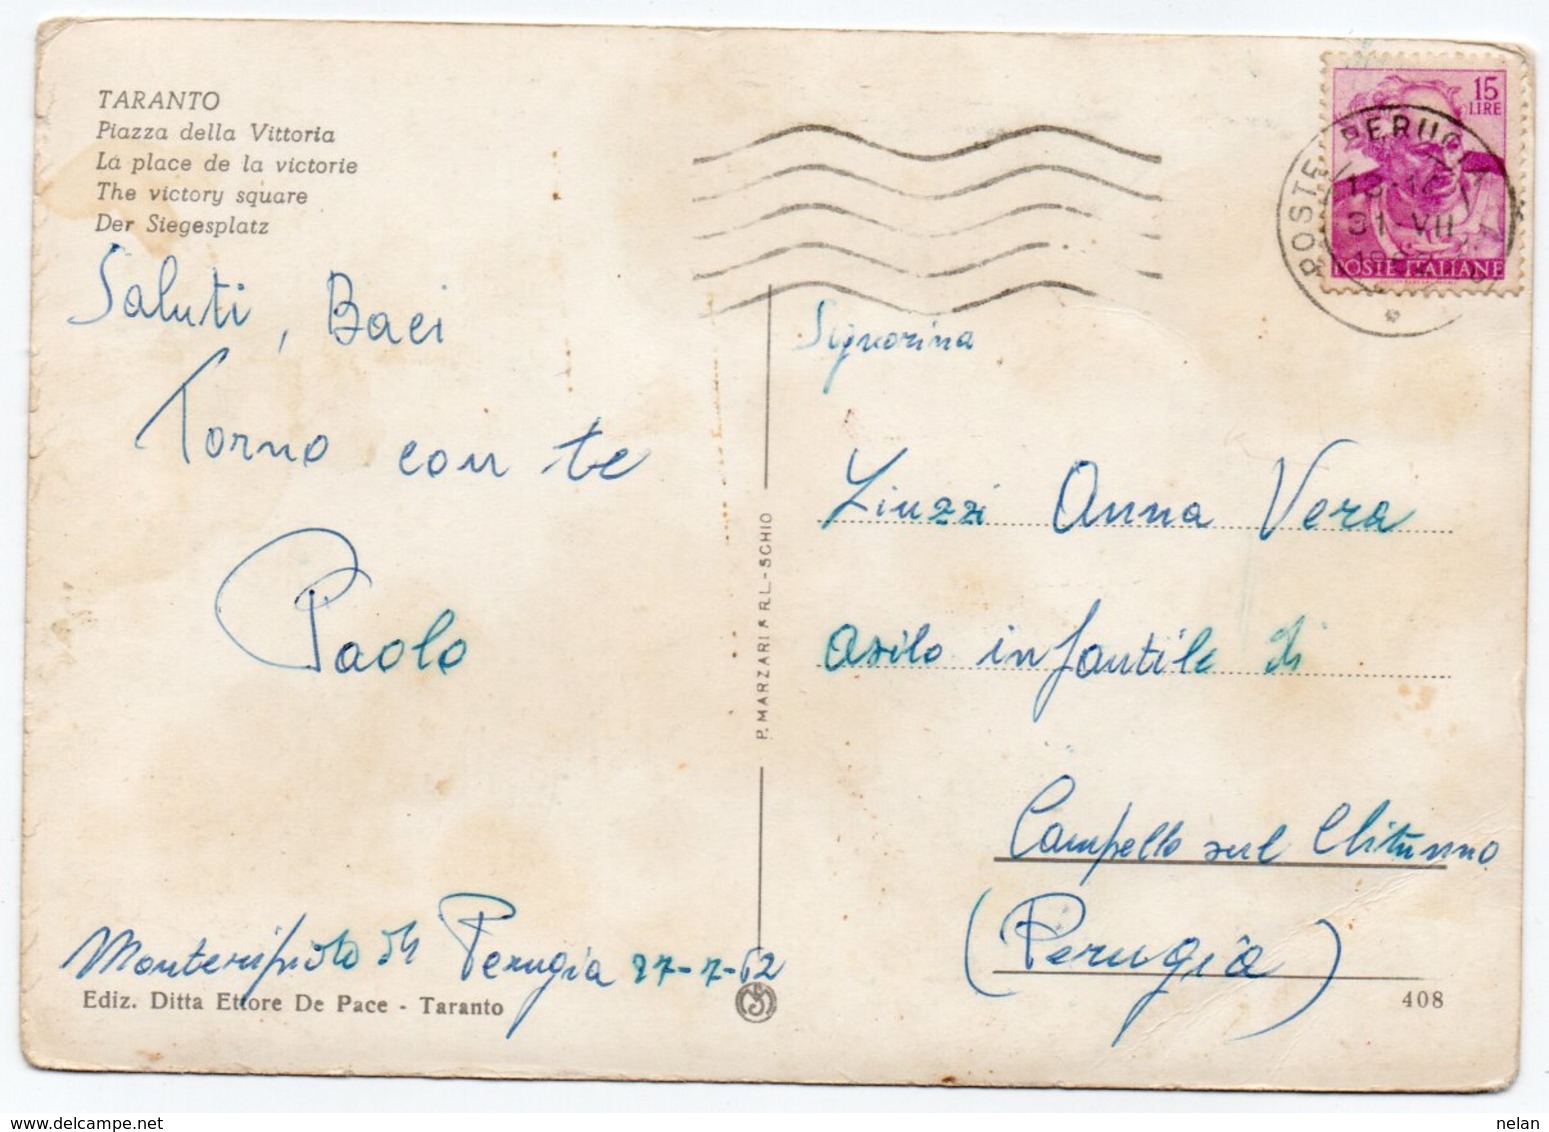 TARANTO
Piazza della Vittoria
La place de la victorie
The victory square
Der Siegesplatz
Saluti, Baci
Torno con te
Paolo
Monteripido di Perugia 27-7-62
Ediz. Ditta Ettore De Pace - Taranto
P. MARZARI S.R.L.-SCHIO
15
LIRE
POSTE ITALIANE
POSTE PERUGIA
31 VII
Signorina
Liuzzi Anna Vera
asilo infantile di
Campello sul Clitunno
(Perugia)
408
nelan